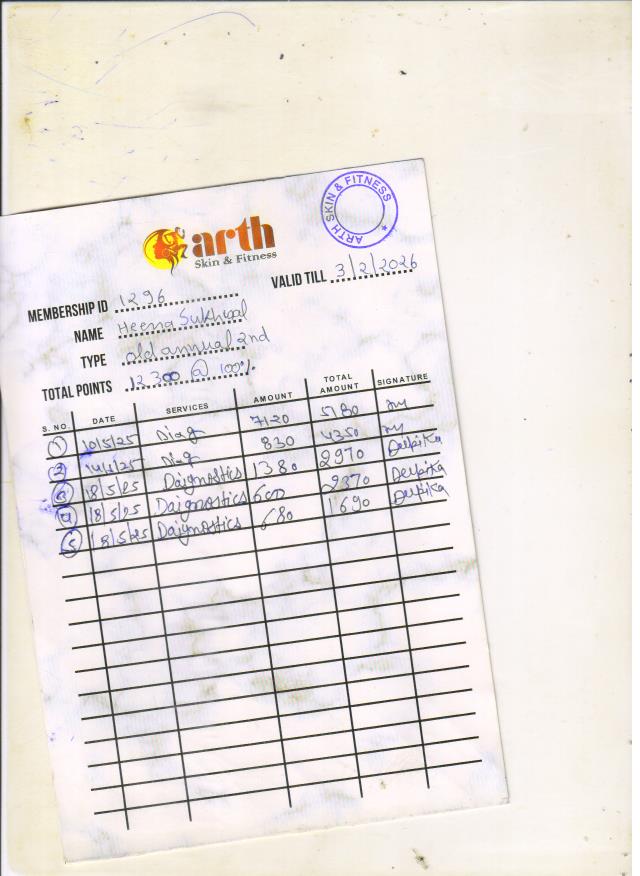 ARTH SKIN & FITNESS
arth
Skin & Fitness
VALID TILL 3/2/2026
MEMBERSHIP ID 1296
NAME Heena Sukhwal
TYPE old annual 2nd
TOTAL POINTS 12300 @ 100%
S. NO. DATE SERVICES AMOUNT TOTAL AMOUNT SIGNATURE
1 10/5/25 Diag 7120 5180
2 14/5/25 Diag 830 4350
3 18/5/25 Daignostics 1380 2970 Deepika
4 18/5/25 Daignostics 600 2370 Deepika
5 18/5/25 Daignostics 680 1690 Deepika